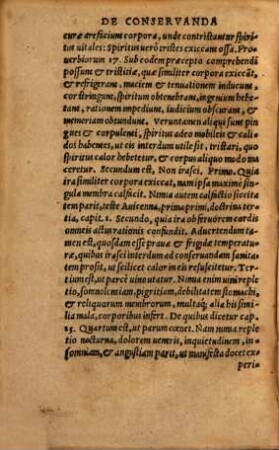 DE CONSERVANDA
curæ arefaciunt corpora, unde contristantur spiri-
tus uitales: Spiritus uerò tristes exiccant ossa. Pro-
uerbiorum 17. Sub eodem præcepto comprehendi
possunt & tristitiæ, quæ similiter corpora exiccãt,
& refrigerant, maciem & tenuationem inducunt,
cor stringunt, spiritum obtenebrant, ingenium hebe-
tant, rationem impediunt, iudicium obscurant, &
memoriam obtundunt. Veruntamen aliqui sum pin-
gues & corpulenti, spiritus adeo mobiles & cali-
dos habentes, ut eis interdum utile sit, tristari, quo
spiritus calor hebetetur, & corpus aliquo modo ma
ceretur. Secundum est, Non irasci. Primo. Quia
ira similiter corpora exiccat, nam ipsa maximè sin-
gula membra calficit. Nimia autem calfictio siccita
tem parit, teste Auicenna, prima primi, doctrina ter
tia, capit. 1. Secundo, quia ira ob feruorem cordis
omneis acturationis confundit. Aduertendum ta-
men est, quosdam esse prauæ & frigidæ temperatu-
ræ, quibus irasci interdum ad conseruandam sanita
tem profit, ut scilicet calor in eis resuscitetur. Ter-
tium est, ut parcè uino utatur. Nimia enim uini reple
tio, somnolentiam, pigritiam, debilitatem stomachi,
& reliquorum membrorum, multaq; alia his simi-
lia mala, corporibus infert. De quibus dicetur cap.
15. Quartum est, ut parum cœnet. Nam nimia reple
tio nocturna, dolorem uentris, inquietudinem, in-
somniam, & angustiam parit, ut manifesta docet ex
peri-